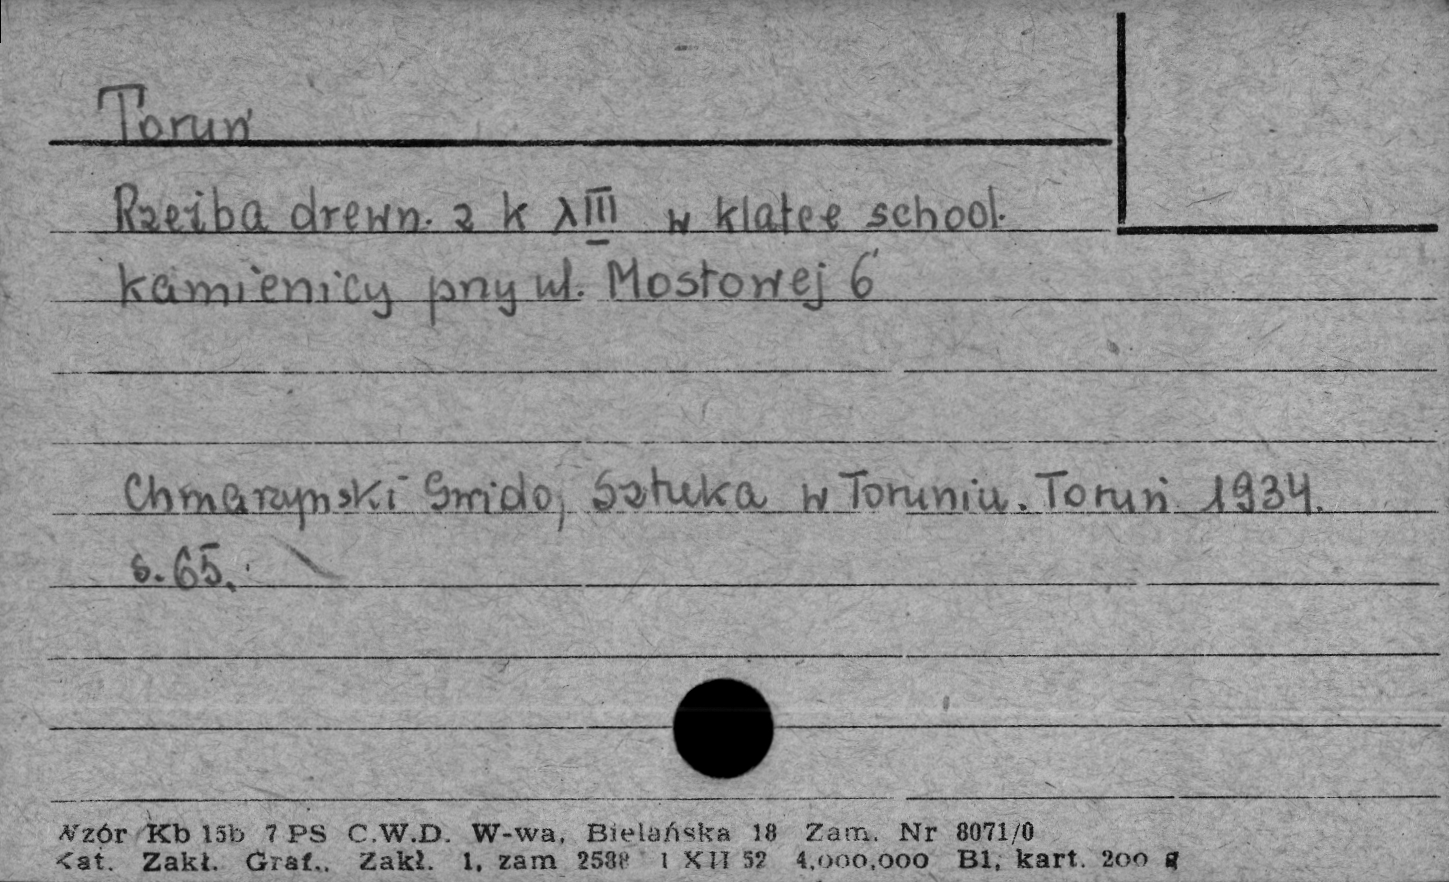 Toruń
Rzeźba drewn. z k XIII w klatce schod.
kamienicy przy ul. Mostowej 6
Chmarzyński Gwido, Sztuka w Toruniu. Toruń 1934.
s. 65.
Wzór Kb 15b 7 PS C.W.D. W-wa, Bielańska 18 Zam. Nr 8071/0
Kat. Zakł. Graf., Zakł. 1, zam 2588 1 XII 52 4.000,000 B1, kart. 200 g